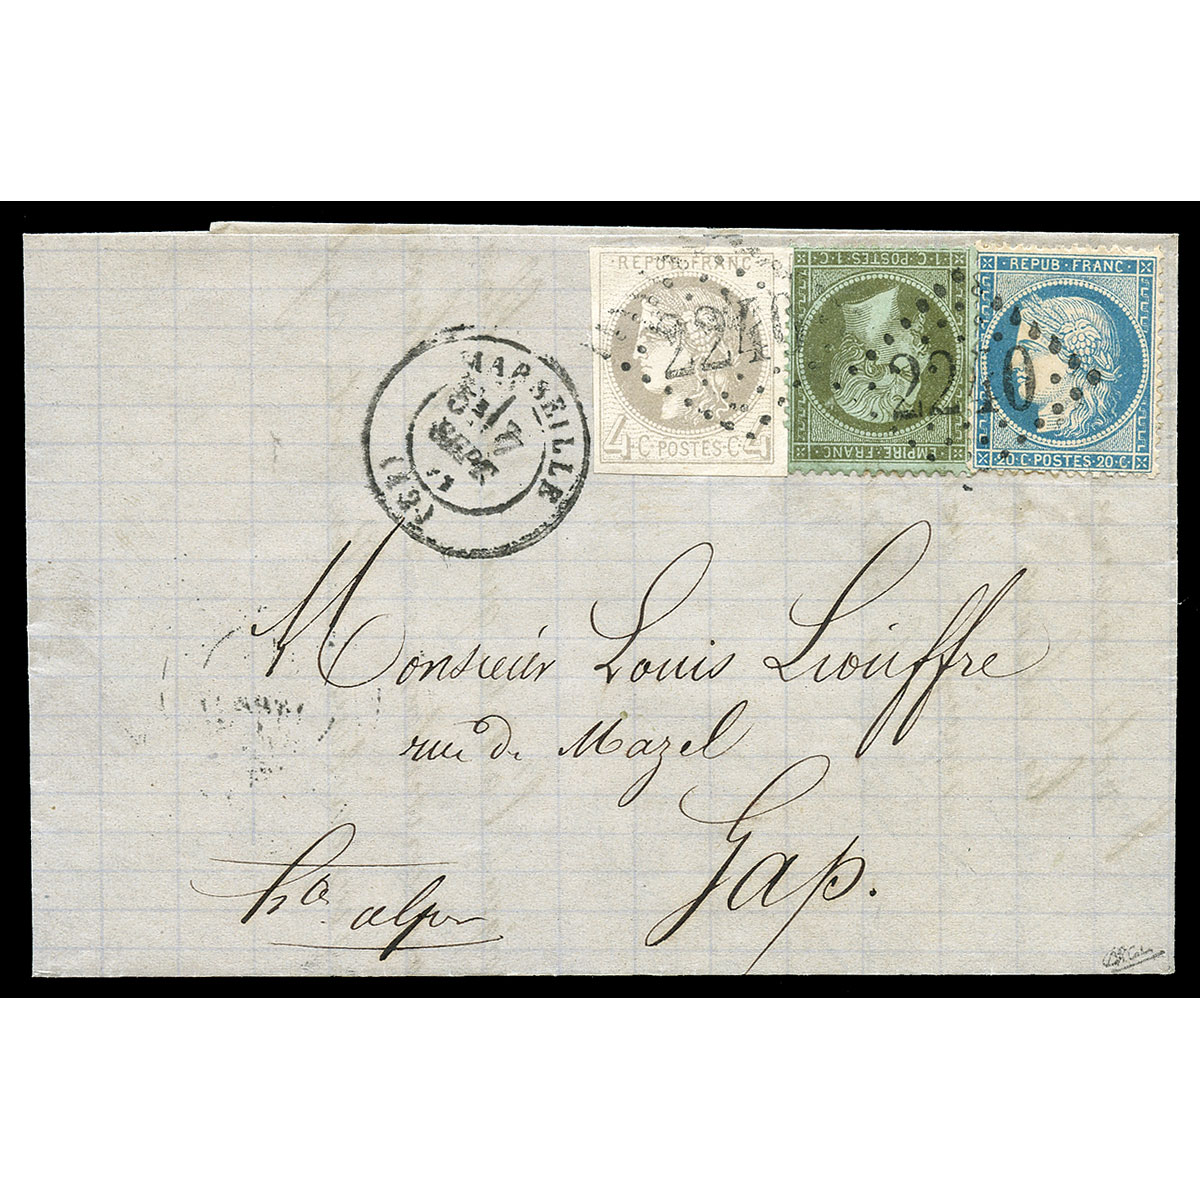 REPUB·FRANC
4·C POSTES·C·4
2240
1·C·POSTES·1·C·
EMPIRE·FRANC
REPUB·FRANC·
20·C·POSTES·20·C·
2240
MARSEILLE
7
SEPT
71
(12)
Monsieur Louis Liouffre
rue de Mazel
Gap.
htes alpes